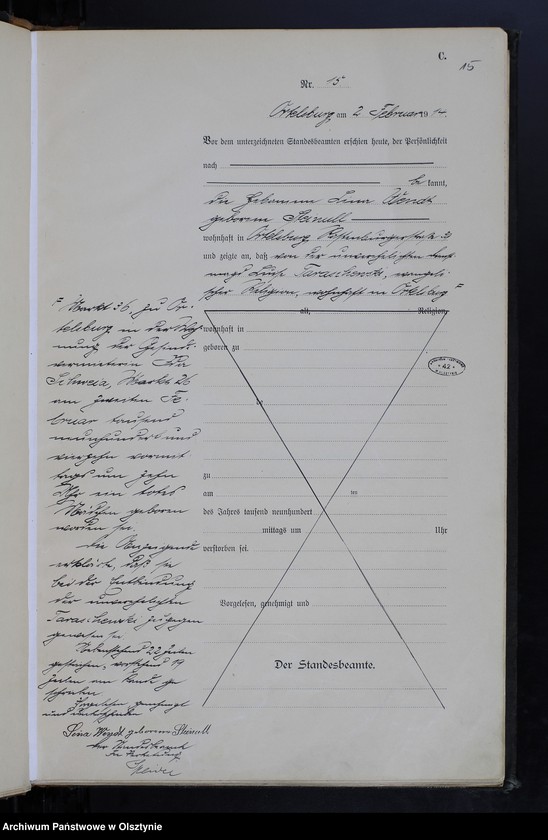 C.
15
Nr. 15
Ortelsburg am 2 Februar 1914
Vor dem unterzeichneten Standesbeamten erschien heute, der Persönlichkeit
nach
bekannt,
die Hebamme Lina Wendt
geborene Steinull
wohnhaft in Ortelsburg
und zeigte an, daß von der unverehelichten Dienst-
magd Luise evangeli-
scher Religion, wohnhaft in Ortelsburg
alt, Religion,
wohnhaft in
geboren zu
zu
am
des Jahres tausend neunhundert
mittags um Uhr
verstorben sei.
Vorgelesen, genehmigt und
Der Standesbeamte.
Markt 36, zu Or-
telsburg in der Woh-
nung der Gesinde-
vermieterin
Markt 26
am zweiten Fe-
bruar tausend
neunhundert und
vierzehn vormit
tags um zehn
Uhr ein totes
Mädchen geboren
worden sei.
Die Anzeigende
erklärte, daß sie
bei der Entbindung
der unverehelichten
zugegen
gewesen sei
Nebenstehend 22 Zeilen
gestrichen, vorstehend 19
Zeilen am Rande ge
schrieben
Vorgelesen genehmigt
und unterschrieben
Lina Wendt geborene Steinull
Der Standesbeamte
In Vertretung
42
Archiwum Państwowe w Olsztynie